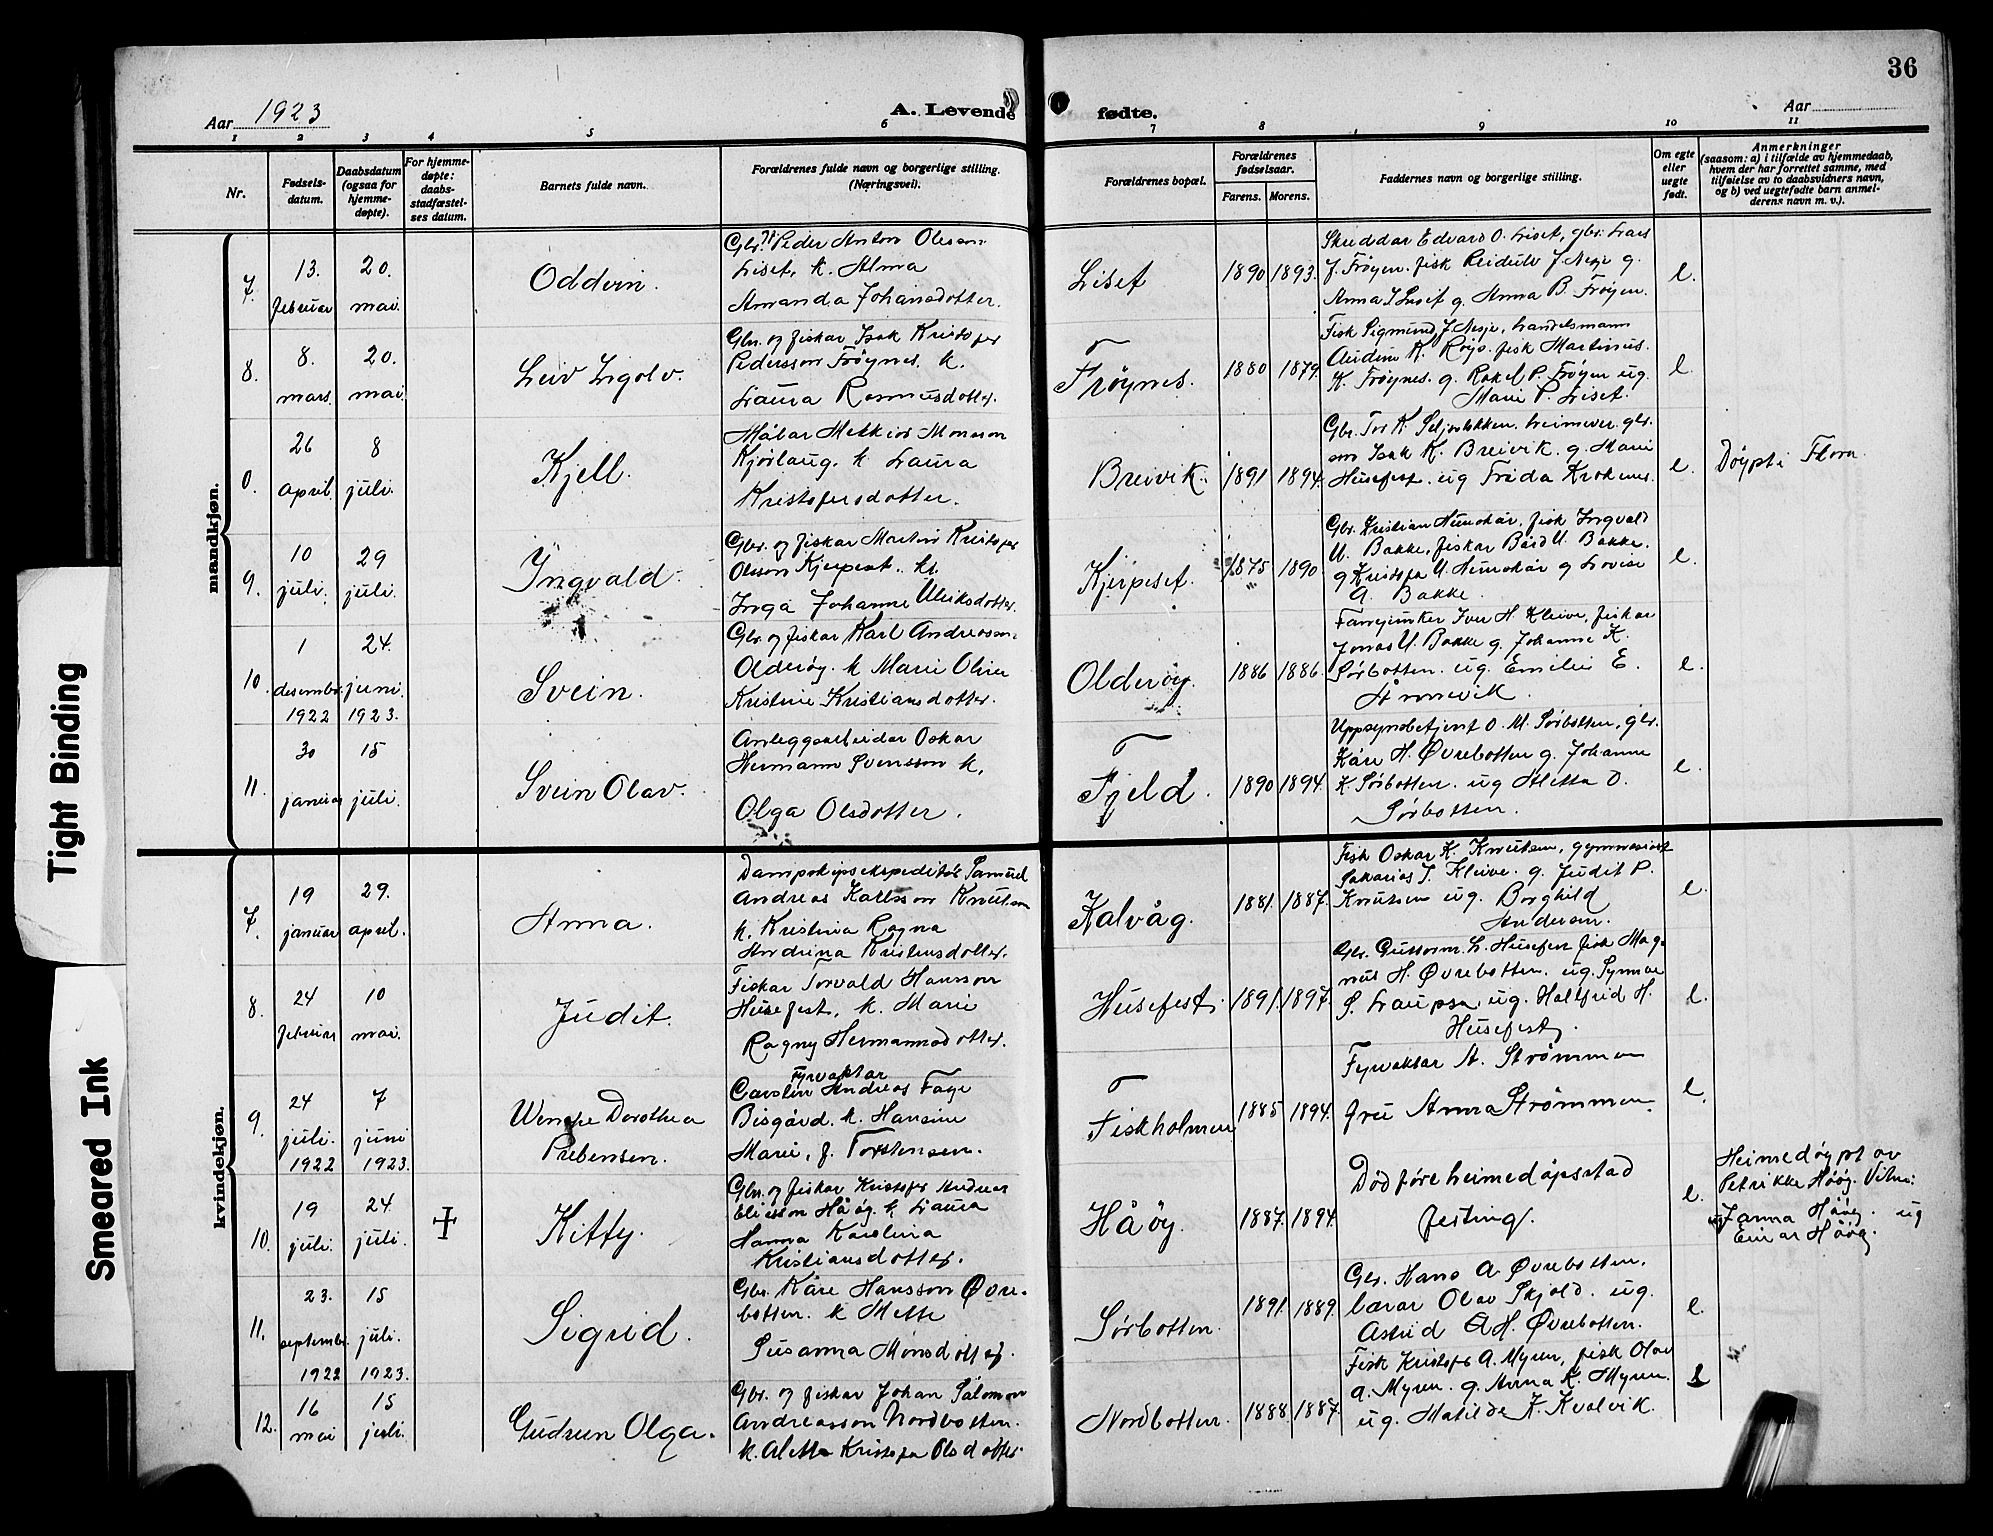 36
Aar 1923
A. Levende fødte.
Aar
1 2 3 4 5 6 7 8 9 10 11
Nr.
Fødsels-
datum.
Daabsdatum
(ogsaa for
hjemme-
døpte).
For hjemme-
døpte:
daabs-
stadfæstel-
ses datum.
Barnets fulde navn.
Forældrenes fulde navn og borgerlige stilling.
(Næringsvei).
Forældrenes bopæl.
Forældrenes
fødselsaar.
Farens. Morens.
Faddernes navn og borgerlige stilling.
Om egte
eller
uegte
født.
Anmerkninger
(saasom: a) i tilfælde av hjemmedaab,
hvem der har forrettet samme, med
tilføielse av to daabsvidners navn,
og b) ved uegtefødte barn anmel-
derens navn m. v.).
mandkjøn.
7.
13.
februar
20.
mai.
Oddvin.
Gbr. Peder Anton Olesson
Liset, k. Alma
Amanda Johansdotter.
Liset
1890 1893.
Skreddar Edvard O. Liset, gbr. Lars
J. Frøyen. fisk Reidulv J Nesje g.
Anna I Liset g. Anna B. Frøyen.
e.
8.
8.
mars.
20.
mai.
Leiv Ingolv.
Gbr. og fiskar Isak Kristofer
Pedersson Frøynes. k.
Laura Rasmusdotter.
Frøynes.
1880 1879.
Fisk Sigmund J. Nesje, handelsmann
K. Røys. fisk Martinus
K. Frøynes. g. Rakel P. Frøyen ug.
Marie P. Liset.
e.
0.
26
april.
8
juli.
Kjell.
Målar Melkior Monsson
Kjørlaug. k Laura
Kristofersdotter.
Breivik.
1891 1894.
Gbr. Tor K. Seljestokken. heimever. gbr.
son Isak K. Breivik. g. Marie
Husefest. ug Frida Krokenes.
e.
Døypt i Flora.
9.
10
juli.
29
juli.
Yngvald.
Gbr. og fiskar Martin Kristofer
Olsson Kjerpeset. k.
Inga Johanne Ulriksdotter.
Kjerpeset.
1875 1890
Gbr. Kristian Humskår, fisk Ingvald
U. Bakke, fiskar Bård U. Bakke.
g Kristofa U. Humskår g Lovise
A. Bakke.
e.
10.
1
desember.
1922
24.
juni.
1923.
Svein.
Gbr. og fiskar Karl Andreasson
Olderøy. k Marie Oline
Kristine Kristiansdotter.
Olderøy.
1886 1886.
Fanejunker Iver H. Kleive, fiskar
Jonas U. Bakke g. Johanne K.
Sørbotten. ug. Emilie E.
Årnevik.
e.
11.
30
januar
15
juli.
Svein Olav.
Anleggsarbeidar Oskar
Hermann Svensson k.
Olga Olsdotter.
Fjeld.
1890 1894.
Uppsynsbetjent O. M. Sørbotten, gbr.
Kåre H. Øvrebotten g. Johanne
K. Sørbotten. ug Aletta O.
Sørbotten.
e.
kvindekjøn.
7.
19
januar
29.
april.
Anna.
Dampskipsekspeditør Samuel
Andreas Karlsson Knutsen
k. Kristina Ragna
Andrina Kristensdotter.
Kalvåg.
1881. 1887.
Fisk Oskar K. Knutsen, gymnasiast
Sakarias I. Kleive. g. Judit P.
Knutsen ug. Borghild
Andersen.
e.
8.
24
februar
10
mai.
Judit.
Fiskar Torvald Hansson
Husefest, k. Marie
Ragny Hermannsdotter.
Husefest.
1891. 1897.
Gbr. Guttorm L. Husefest fisk Mag-
nus H. Øvrebotten. ug. Synnøe
S. Laupsa. ug. Hallfrid H.
Husefest.
e.
9.
24
juli.
1922
7
juni
1923.
Wenche Dorothea
Prebensen.
Fyrvaktar
Carsten Andreas Faye
Bisgård. k. Hansine
Marie, f. Torstensen.
Fiskholmen
1885 1894.
Fyrvaktar A. Strømmen
fru Anna Strømmen.
e.
10.
19
juli.
24.
juli.
Kitty.
Gbr. og fiskar Kristofer Andreas
Eliasson Håøy. k Laura
Hanna Karolina
Kristiansdotter.
Håøy.
1887. 1894.
Død före heimedåpsstad
festing.
e.
Heimedøypt av
Petrikke Håøy. Vitne:
Janna Håøy. ug
Einar Håøy.
11.
23.
september.
1922
15
juli.
1923.
Sigrid.
Gbr. Kåre Hansson Øvre-
botten. k Mette
Susanna Monsdotter.
Sørbotten.
1891. 1889.
Gbr. Hans A Øvrebotten.
lærar Olav Skjold. ug.
Astrid A H. Øvrebotten.
e.
12.
16
mai
15
juli.
Gudrun Olga.
Gbr. og fiskar Johan Salomon
Andreasson Nordbotten.
k. Aletta Kristofa Olsdotter.
Nordbotten.
1888. 1887.
Fisk Kristofer A. Myren, fisk Olav
A. Myren. g. Anna K. Myren.
ug. Matilde K. Kvalvik.
e
Tight Binding
Smeared Ink